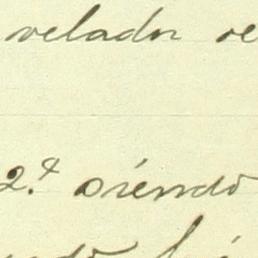 velador se
2.ª siendo